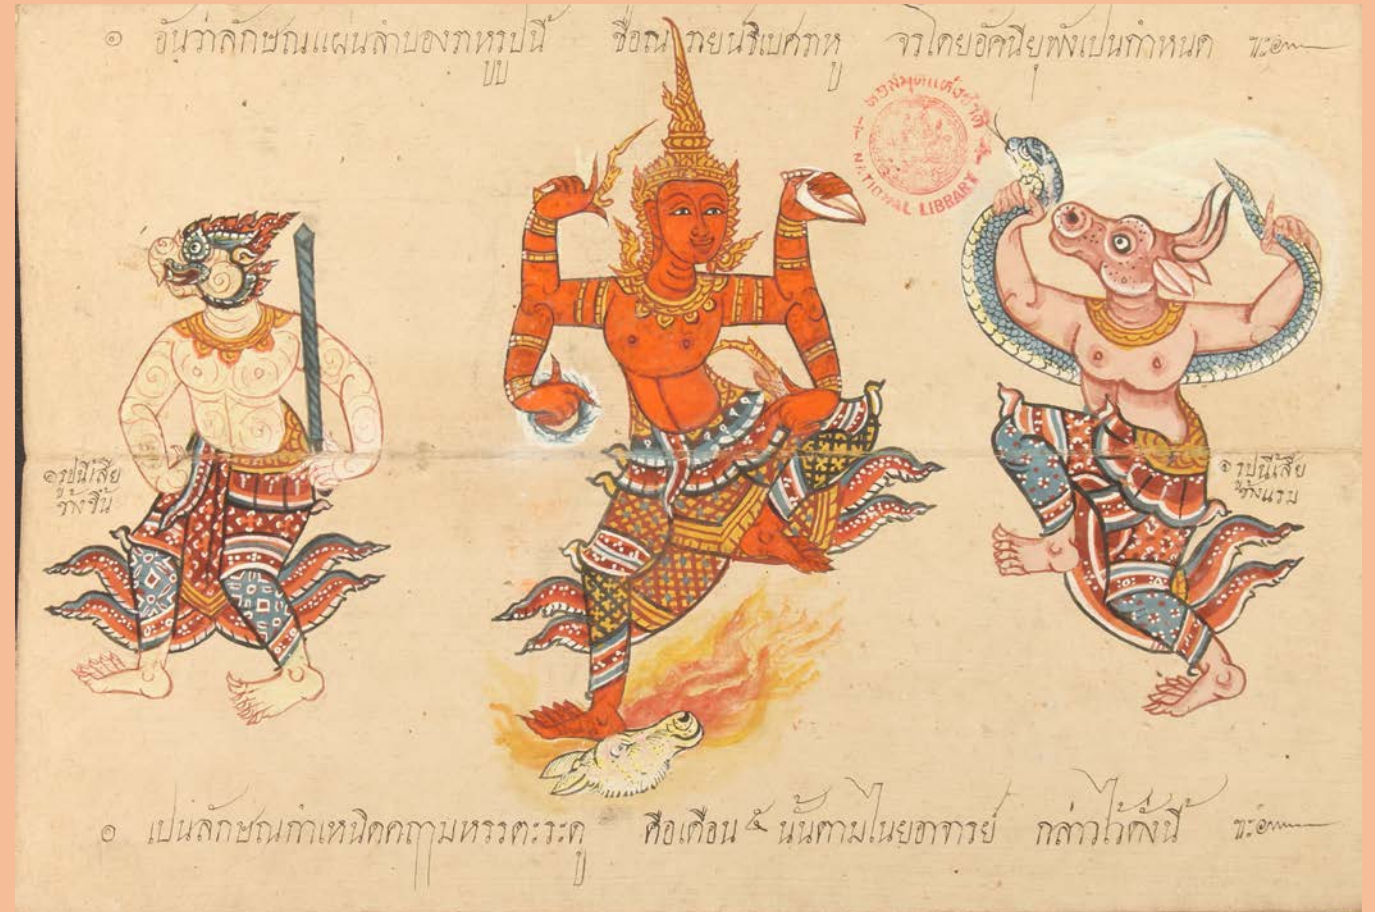 ๏ อันว่าลักษณแผนลำบองราหูรูปนี้ ชื่อณรายนชิเบศราหู จรโดยอัคนิยุพังเปนกำหนด ฯะ๛
หอสมุดแห่งชาติ
NATIONAL LIBRARY
๏ รูปนี้เสีย
ข้างขึ้น
๏ รูปนี้เสีย
ข้างแรม
๏ เปนลักษณกำเหนิดคฤามหรรตะระดู คือเดือน ๕ นั้นตามไนยอาจารย์ กล่าวไว้ดั่งนี้ ฯะ๛